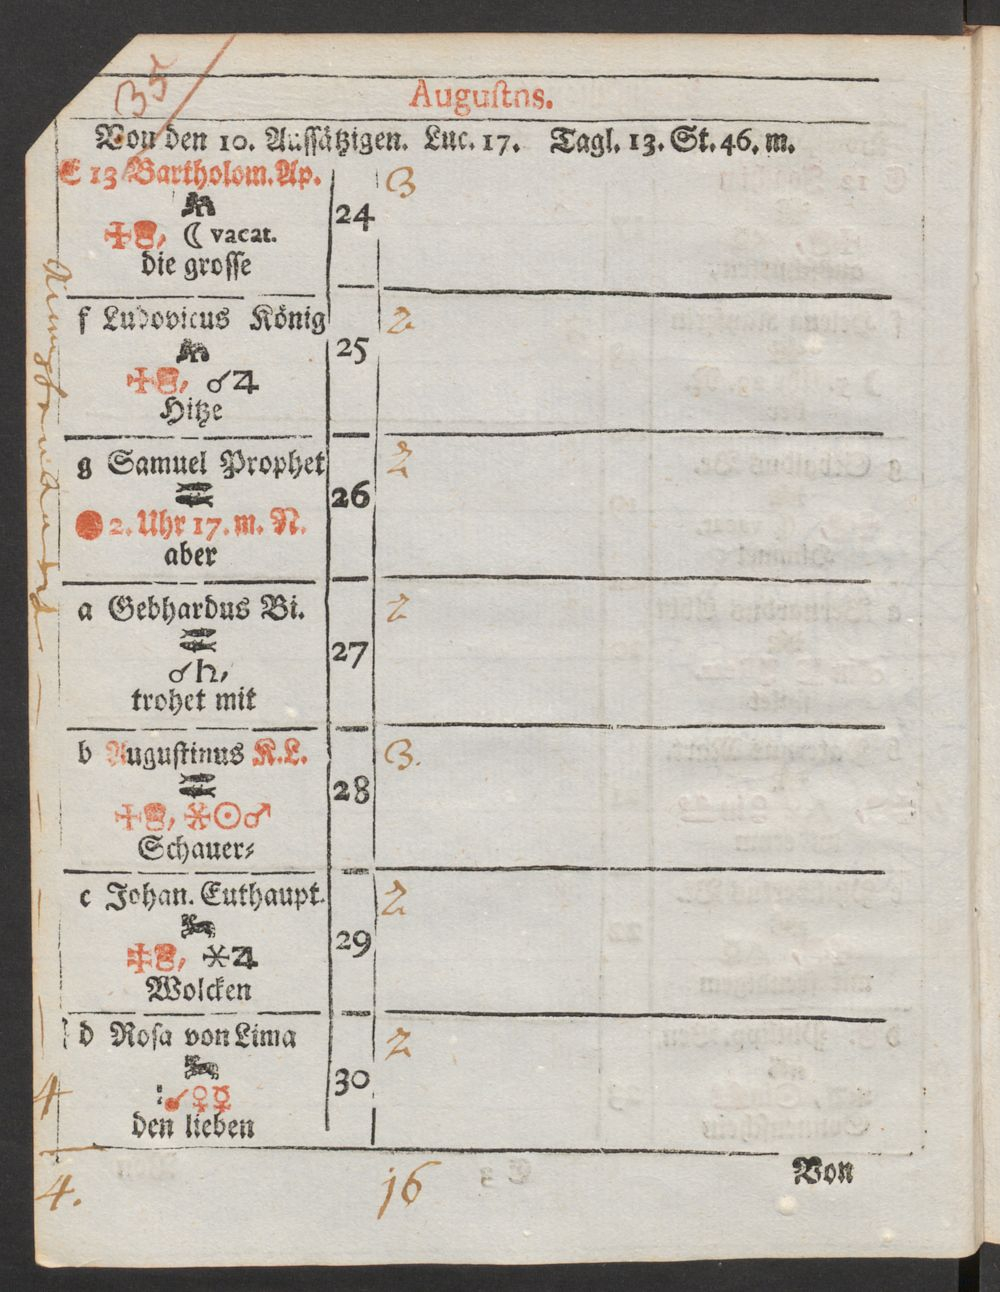 35
Augustns.
Von den 10. Aussätzigen. Luc. 17. Tagl. 13. St. 46. m.
E 13 Bartholom. Ap.
24
3
☾ vacat.
die grosse
f Ludovicus König
25
2
☌♃
Hitze
g Samuel Prophet
26
2
2. Uhr 17. m. N.
aber
a Gebhardus Bi.
27
2
☌♄,
trohet mit
b Augustinus K.L.
28
3.
⚹☉♂
Schauer⸗
c Johan. Euthaupt.
29
2
⚹♃
Wolcken
d Rosa von Lima
30
2
☌♀☿
den lieben
4
4.
16
Von